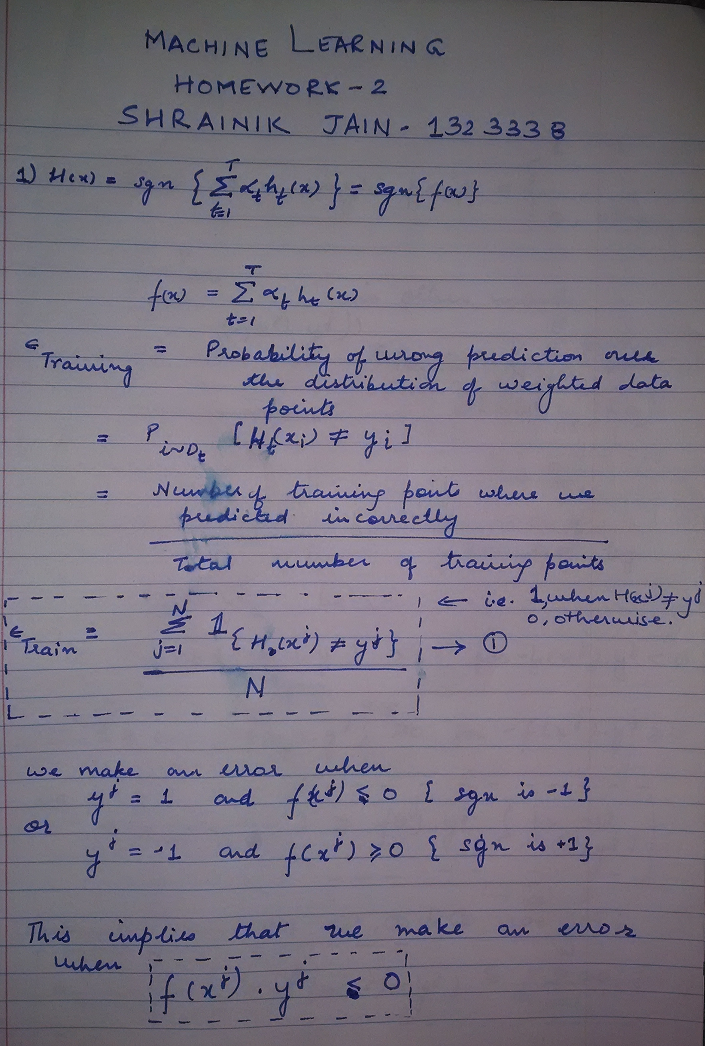 MACHINE LEARNING
HOMEWORK - 2
SHRAINIK JAIN - 1323338
1) H(x) = sgn { Σ_{t=1}^{T} α_t h_t(x) } = sgn{f(x)}
f(x) = Σ_{t=1}^{T} α_t h_t(x)
ε_Training = Probability of wrong prediction over
the distribution of weighted data
points
= P_{i~D_t} [H_t(x_i) ≠ y_i]
= Number of training points where we
predicted incorrectly
Total number of training points
← i.e. 1, when H(x^j) ≠ y^j
0, otherwise.
ε_Train = Σ_{j=1}^{N} 1_{H(x^j) ≠ y^j} → ①
N
we make an error when
y^j = 1 and f(x^j) ≤ 0 { sgn is -1}
or
y^j = -1 and f(x^j) ≥ 0 { sgn is +1}
This implies that we make an error
when f(x^j) . y^j ≤ 0